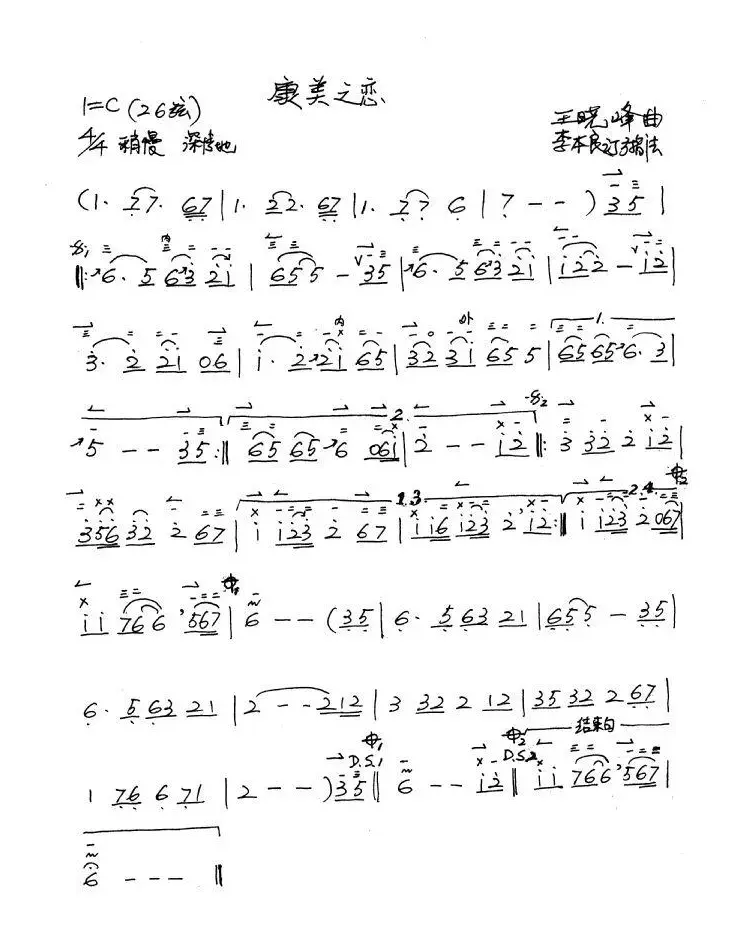 康美之恋
1=C (26弦)
4/4 稍慢 深情地
王晓峰曲
李本良订弓指法
(1· 27· 67 | 1· 22· 67 | 1· 27 6 | 7 - - ) 35 |
𝄋1 ‖: 6· 5 63 21 | 655 - 35 | 6· 5 63 21 | 122 - 12 |
内
3· 2 21 06 | 1· 2 21 65 | 32 31 65 5 | 65 65 6· 3 |
内 外 1.
5 - - 35 :‖ 65 65 6 061 | 2 - - 12 ‖: 3 32 2 12 |
2. 𝄋2
356 32 2 67 | 1 123 2 67 | 116 123 2, 12 :‖ 1 123 2 067 |
1.3. 2.4. 𝄌2
11 766, 567 | 6 - - (35 | 6· 5 63 21 | 655 - 35 |
𝄌1
6· 5 63 21 | 2 - - 212 | 3 32 2 12 | 35 32 2 67 |
𝄌1 𝄌2 结束句
D.S.1 D.S.2
1 76 6 71 | 2 - - ) 35 ‖ 6 - - 12 ‖ 11 766, 567 |
6 - - - ‖